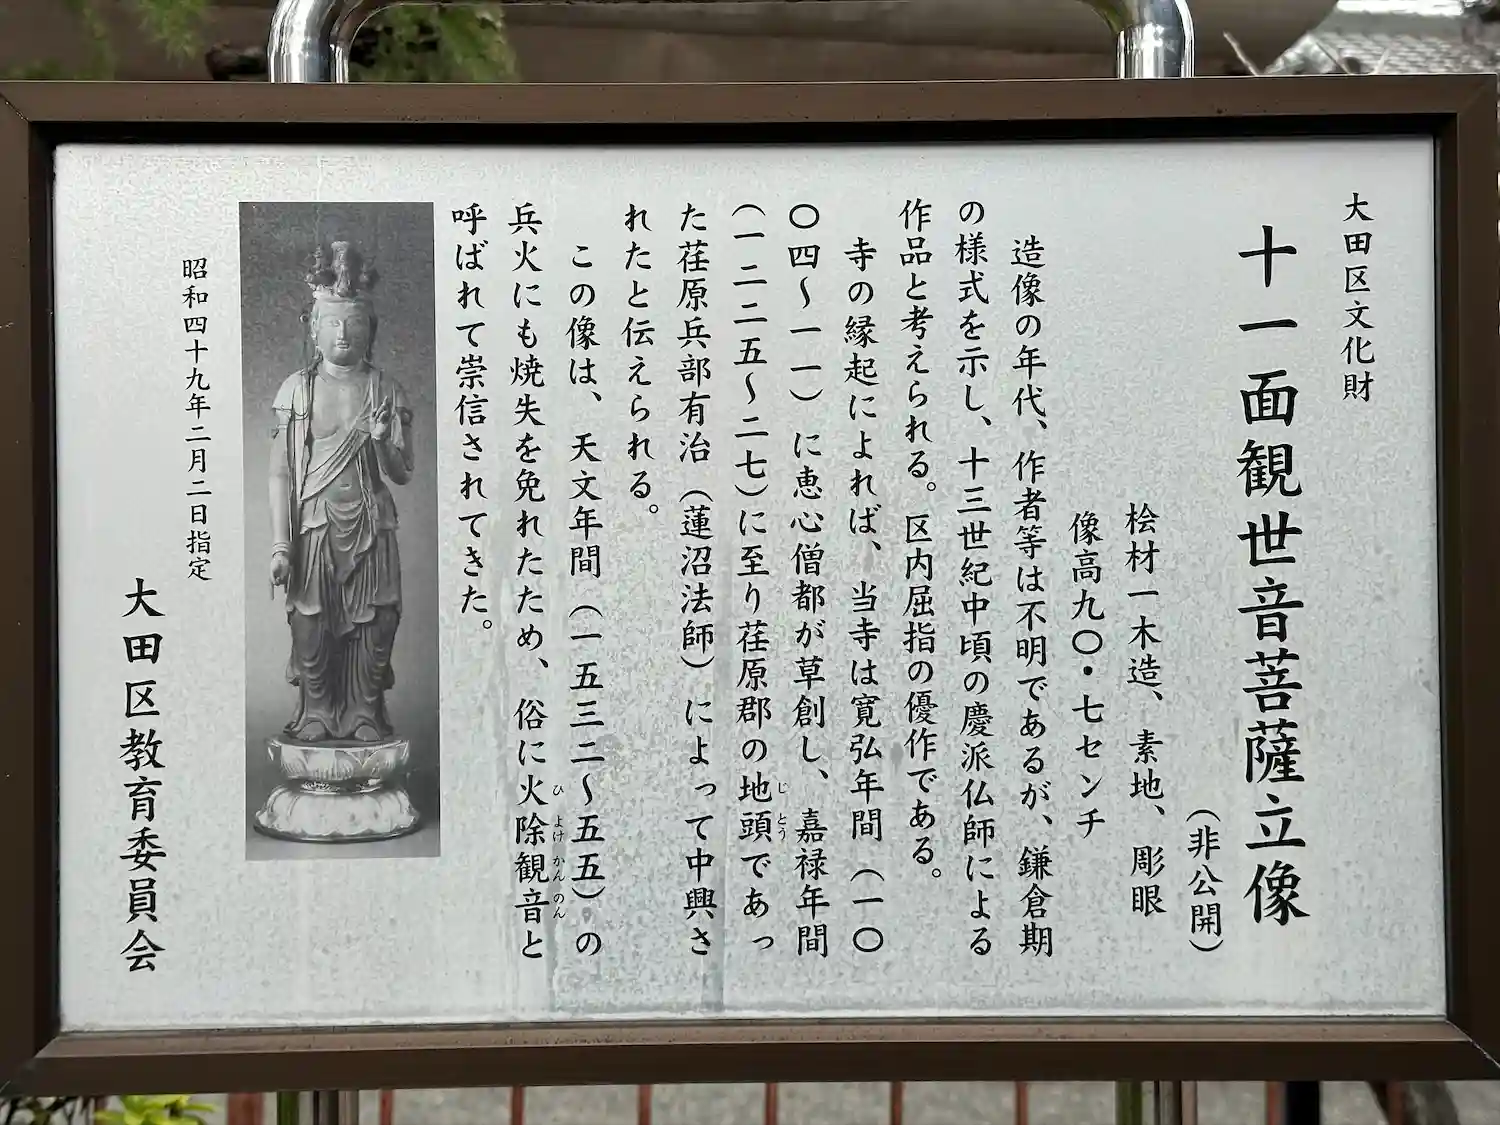 大田区文化財
十一面観世音菩薩立像
(非公開)
桧材一木造、素地、彫眼
像高九〇・七センチ
造像の年代、作者等は不明であるが、鎌倉期
の様式を示し、十三世紀中頃の慶派仏師による
作品と考えられる。区内屈指の優作である。
寺の縁起によれば、当寺は寛弘年間(一〇
〇四〜一一)に恵心僧都が草創し、嘉禄年間
(一二二五〜二七)に至り荏原郡の地頭であっ
じとう
た荏原兵部有治(蓮沼法師)によって中興さ
れたと伝えられる。
この像は、天文年間(一五三二〜五五)の
兵火にも焼失を免れたため、俗に火除観音と
ひよけかんのん
呼ばれて崇信されてきた。
昭和四十九年二月二日指定
大田区教育委員会